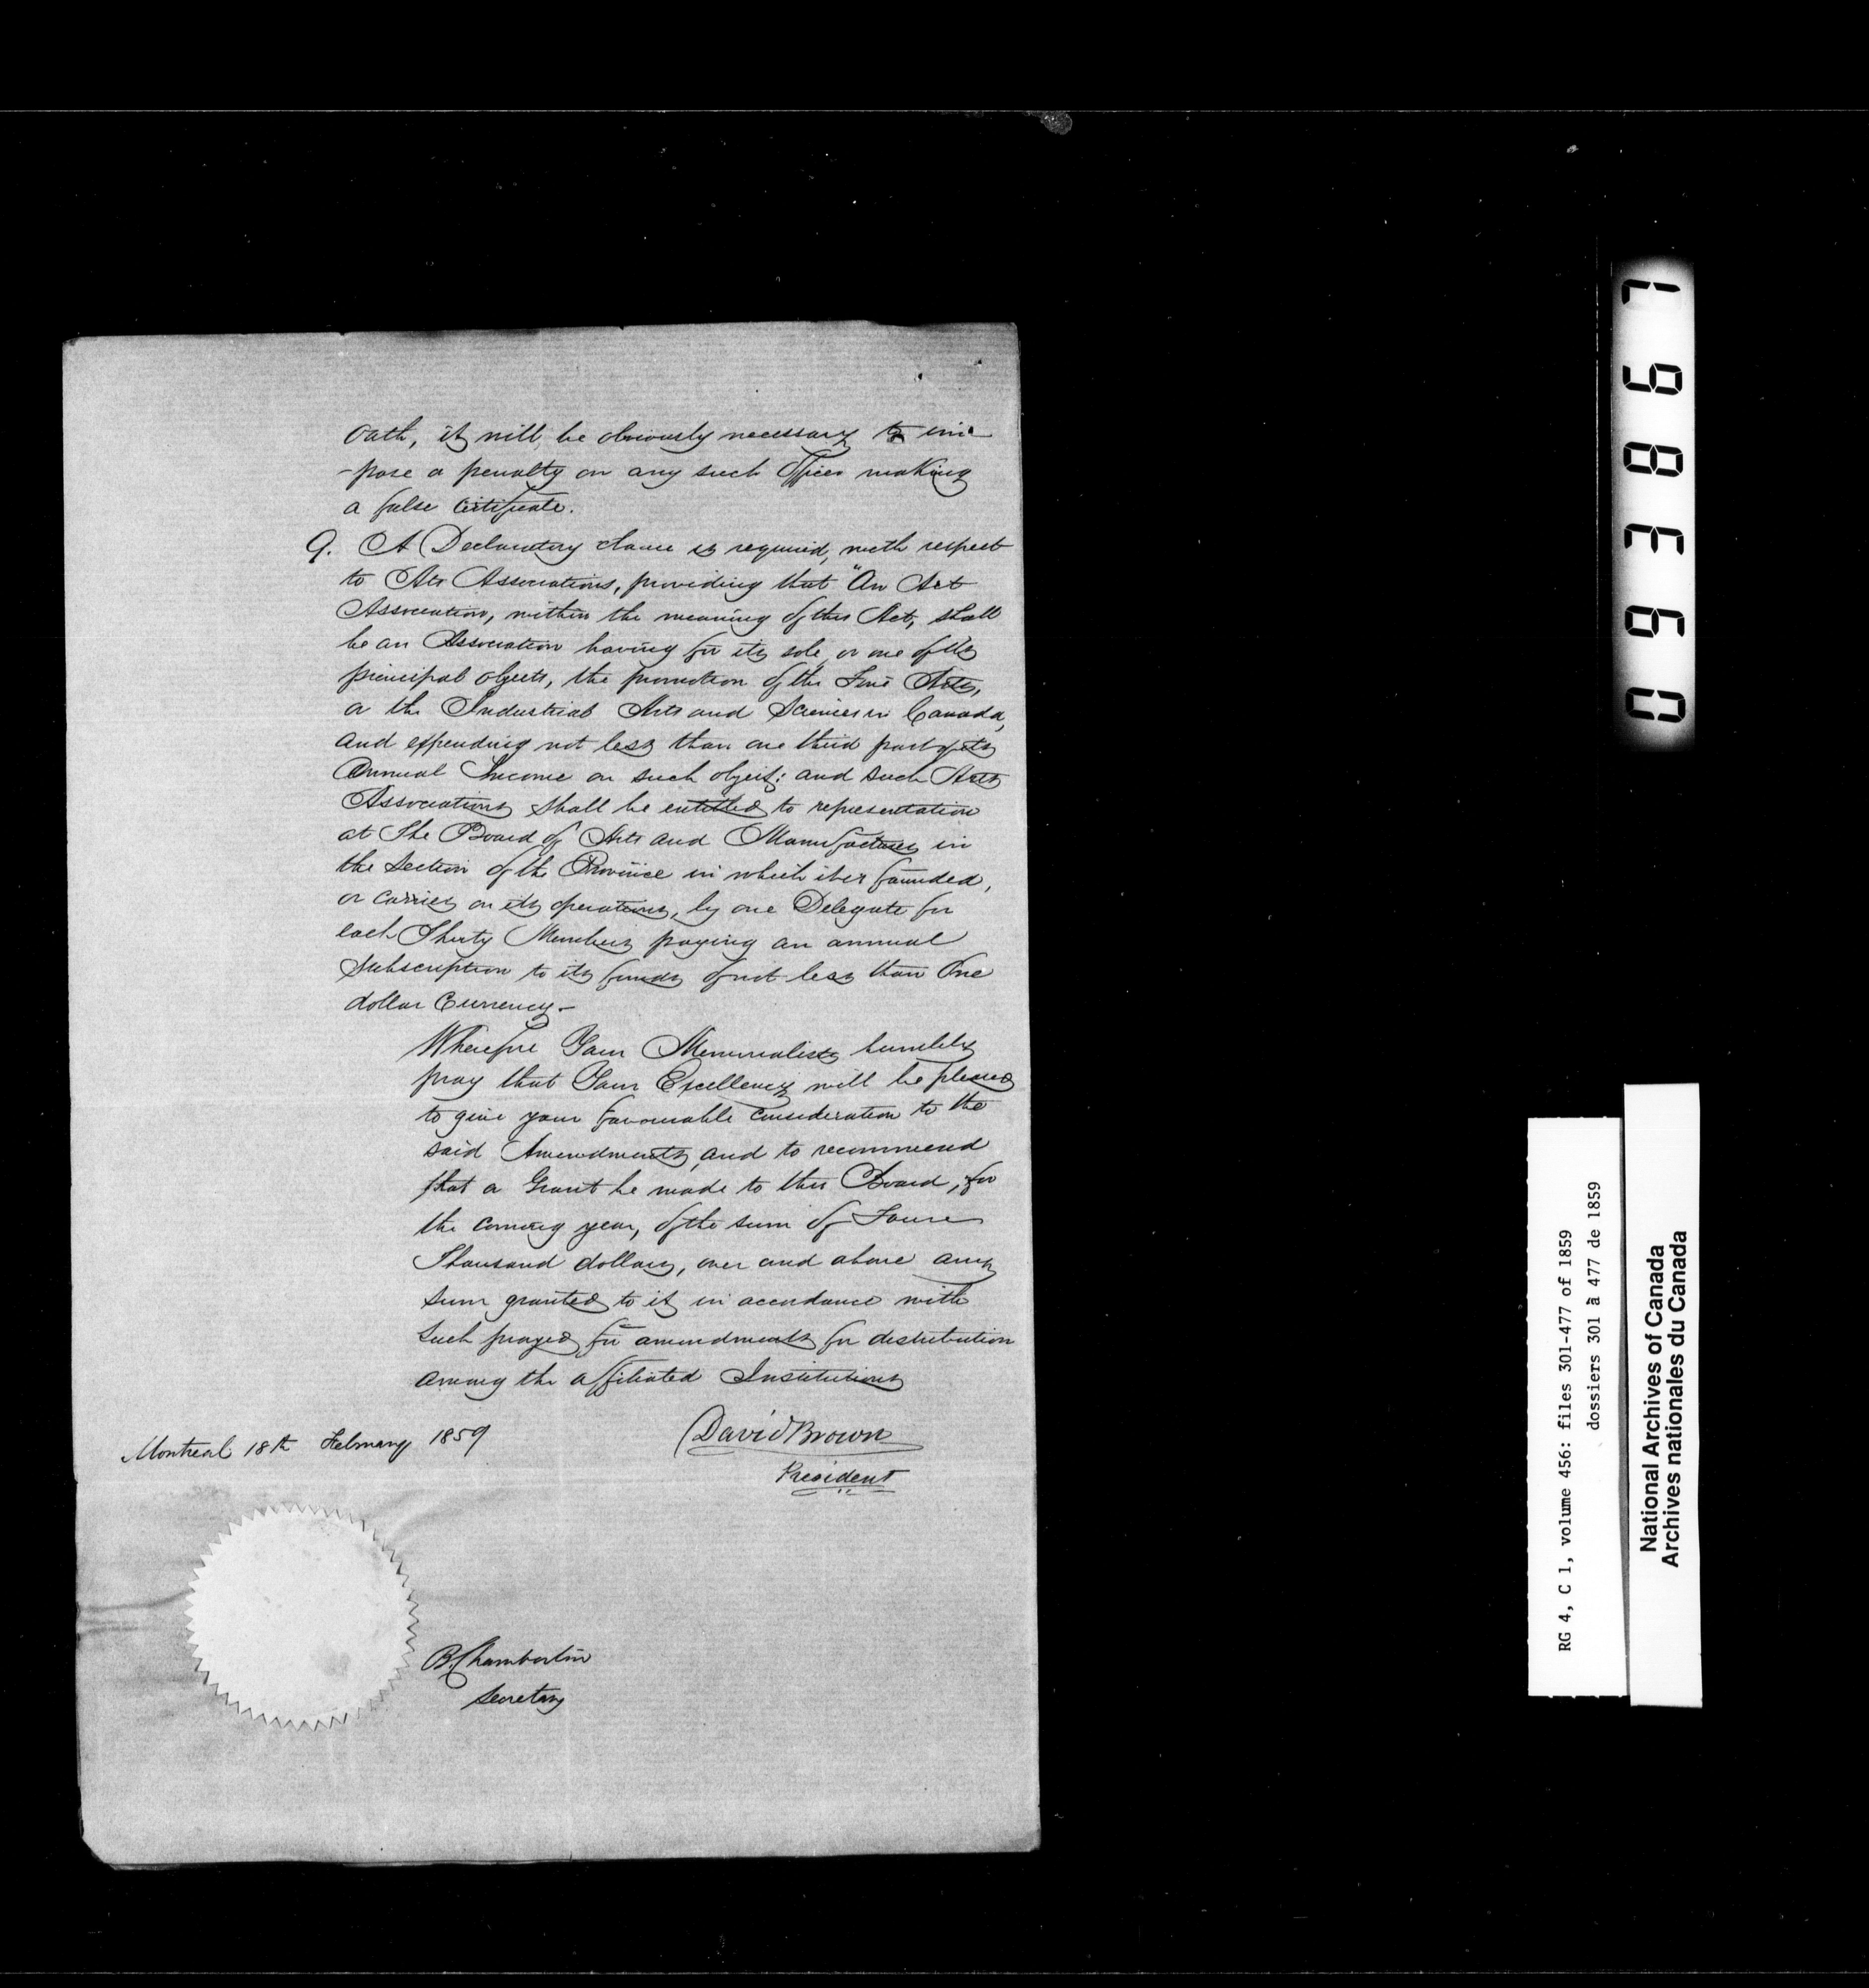 Oath, it will, be obviously necessary to im
-pose a penalty on any such Officer making
a false Certificate.
9. A Declaratory clause is required, with respect
to Art Associations, providing that "An Art
Association, within the meaning of this Act, shall
be an Association having for its sole, or one of its
principal objects, the promotion of the Fine Arts,
or the Industrial Arts and Sciences in Canada,
and expending not less than one third part of its
Annual Income on such object; and such Arts
Associations shall be entitled to representation
at The Board of Arts and Manufactures in
the Section of the Province in which it is founded,
or carries on its operations, by one Delegate for
each Thirty Members paying an annual
Subscription to its funds of not less than One
dollar Currency.-
Wherefore Your Memorialists humbly
pray that Your Excellency will be pleased
to give your favourable consideration to the
said Amendments, and to recommend
that a Grant be made to this Board, for
the coming year, of the sum of Four
Thousand dollars, over and above any
sum granted to it in accordance with
Such prayed for amendments for distribution
among the affiliated Institutions
Montreal 18th February 1859
David Brown
President
B. Chamberlin
Secretary
093867
RG 4, C 1, volume 456: files 301-477 of 1859
dossiers 301 à 477 de 1859
National Archives of Canada
Archives nationales du Canada